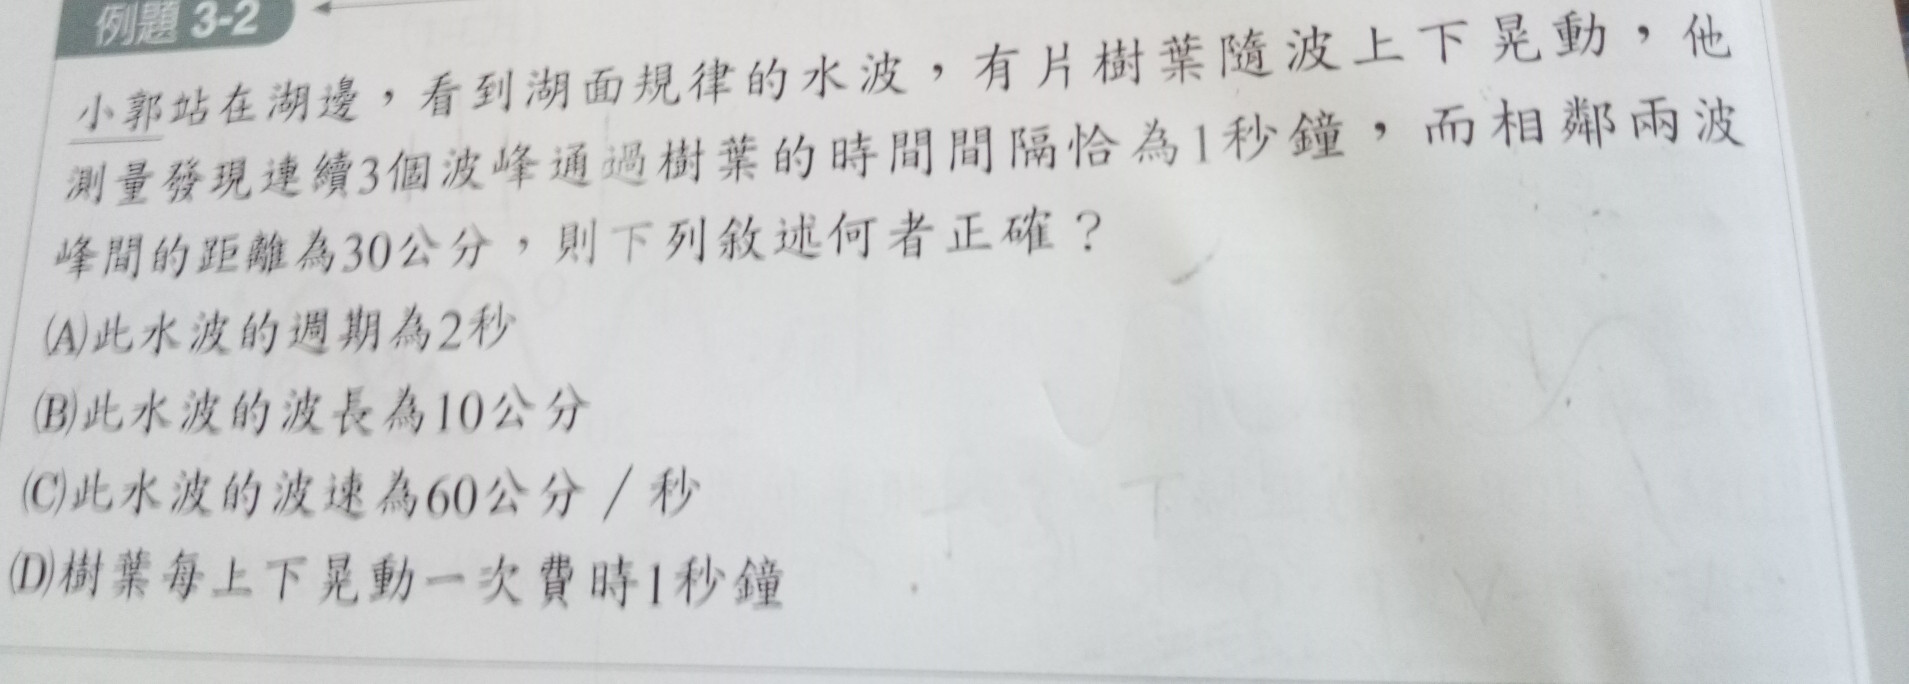 例題 3-2
小郭站在湖邊，看到湖面規律的水波，有片樹葉隨波上下晃動，他
測量發現連續3個波峰通過樹葉的時間間隔恰為1秒鐘，而相鄰兩波
峰間的距離為30公分，則下列敘述何者正確？
(A)此水波的週期為2秒
(B)此水波的波長為10公分
(C)此水波的波速為60公分／秒
(D)樹葉每上下晃動一次費時1秒鐘